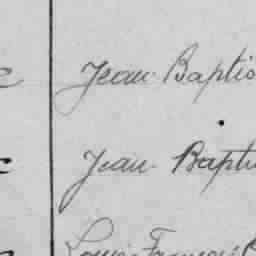 Jean Baptis
Jean Bapti
Louis François